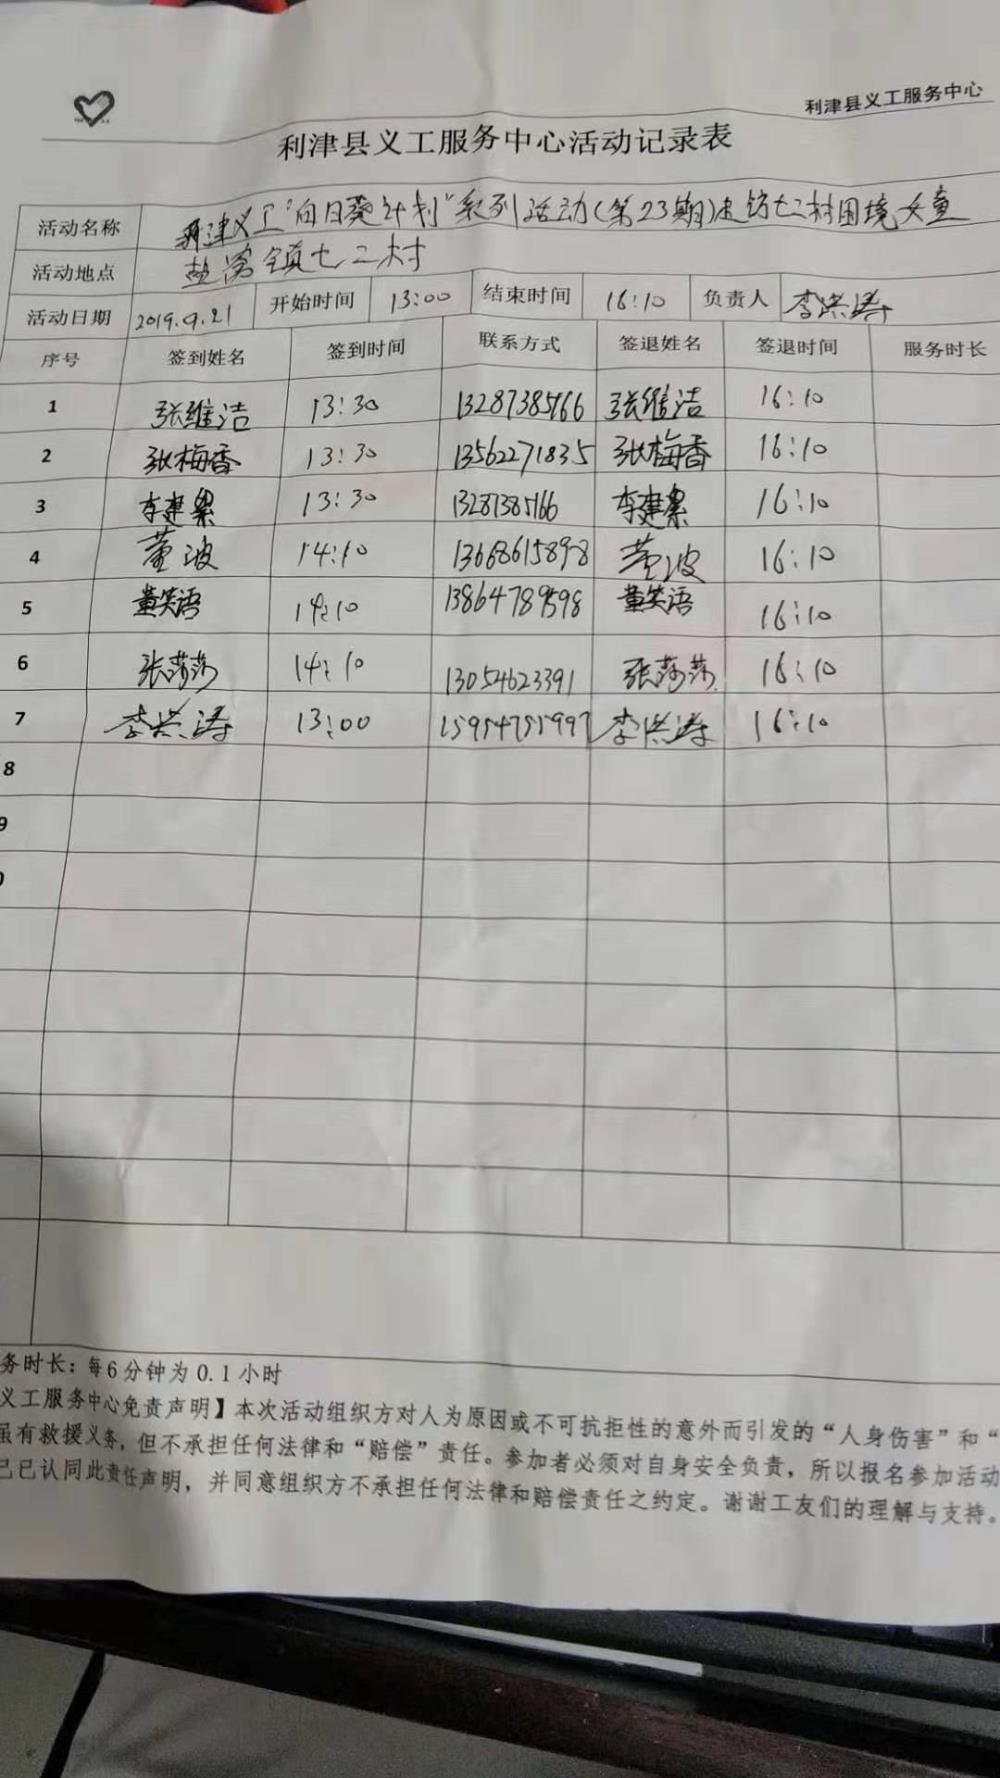 利津县义工服务中心
利津县义工服务中心活动记录表
活动名称 利津义工“向日葵计划”系列活动(第23期)走访七二村困境女童
活动地点 盐窝镇七二村
活动日期 2019.9.21 开始时间 13:00 结束时间 16:10 负责人 李洪涛
序号 签到姓名 签到时间 联系方式 签退姓名 签退时间 服务时长
1 张维洁 13:30 13287385166 张维洁 16:10
2 张梅香 13:30 13562271835 张梅香 16:10
3 李建 13:30 13287385166 李建 16:10
4 董波 14:10 13668615898 董波 16:10
5 董笑语 14:10 13864789598 董笑语 16:10
6 张莎莎 14:10 13054623391 张莎莎 16:10
7 李洪涛 13:00 李洪涛 16:10
8
9
务时长：每6分钟为0.1小时
义工服务中心免责声明】本次活动组织方对人为原因或不可抗拒性的意外而引发的“人身伤害”和“
虽有救援义务，但不承担任何法律和“赔偿”责任。参加者必须对自身安全负责，所以报名参加活动
己已认同此责任声明，并同意组织方不承担任何法律和赔偿责任之约定。谢谢工友们的理解与支持。